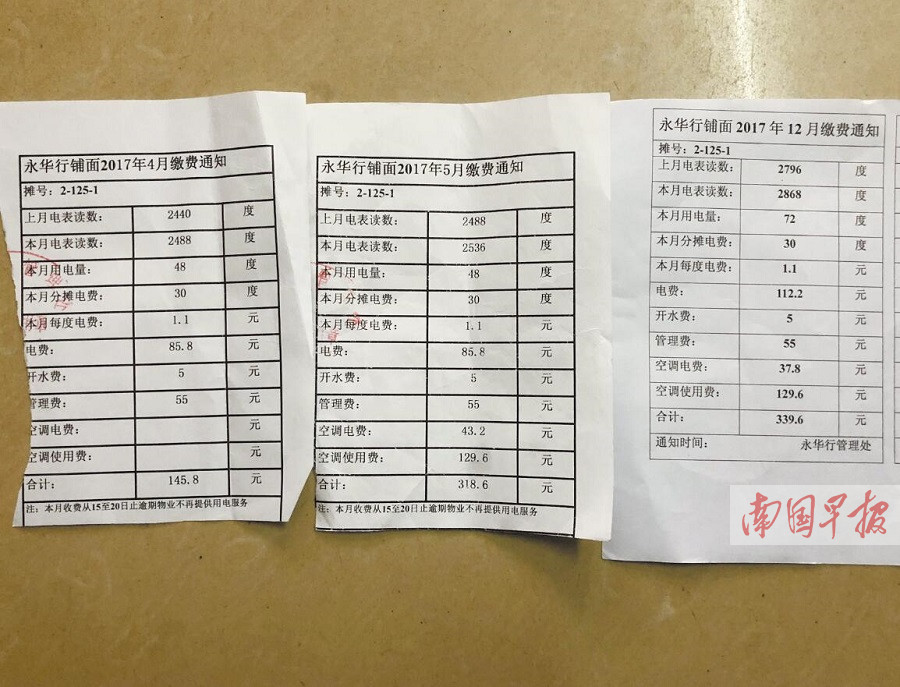 永华行铺面2017年4月缴费通知
摊号：2-125-1
上月电表读数： 2440 度
本月电表读数： 2488 度
本月用电量： 48 度
本月分摊电费： 30 度
本月每度电费： 1.1 元
电费： 85.8 元
开水费： 5 元
管理费： 55 元
空调电费： 元
空调使用费： 元
合计： 145.8 元
注：本月收费从15至20日止逾期物业不再提供用电服务
永华行铺面2017年5月缴费通知
摊号：2-125-1
上月电表读数： 2488 度
本月电表读数： 2536 度
本月用电量： 48 度
本月分摊电费： 30 度
本月每度电费： 1.1 元
电费： 85.8 元
开水费： 5 元
管理费： 55 元
空调电费： 43.2 元
空调使用费： 129.6 元
合计： 318.6 元
注：本月收费从15至20日止逾期物业不再提供用电服务
永华行铺面2017年12月缴费通知
摊号：2-125-1
上月电表读数： 2796 度
本月电表读数： 2868 度
本月用电量： 72 度
本月分摊电费： 30 度
本月每度电费： 1.1 元
电费： 112.2 元
开水费： 5 元
管理费： 55 元
空调电费： 37.8 元
空调使用费： 129.6 元
合计： 339.6 元
通知时间： 永华行管理处
南国早报